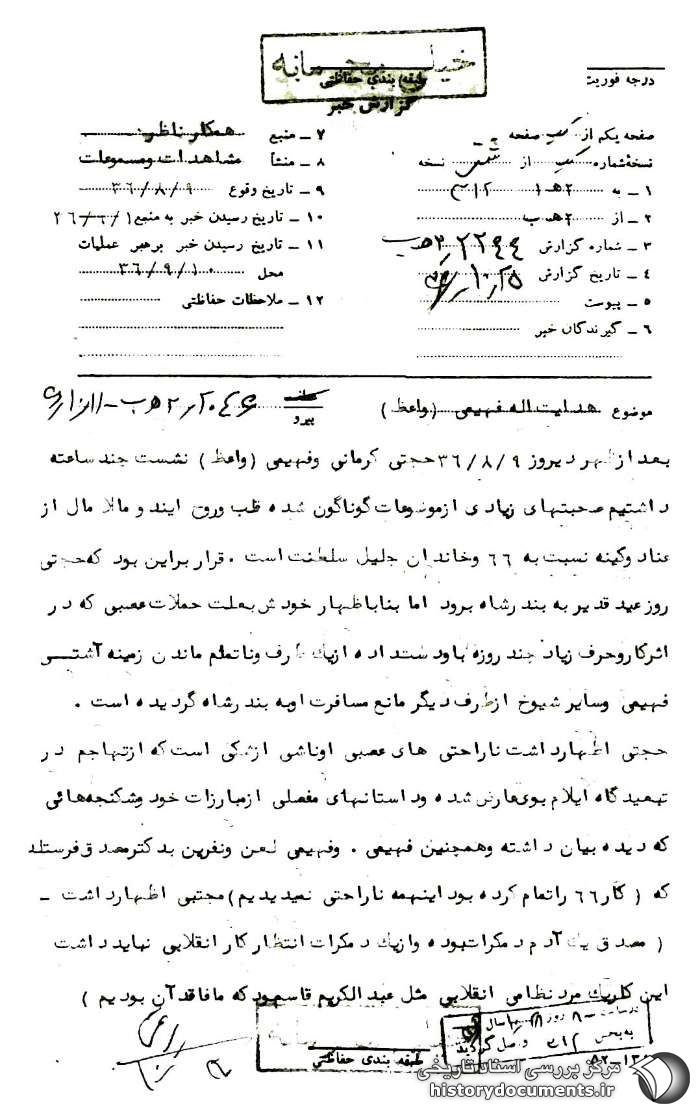 خیلی محرمانه
طبقه بندی حفاظتی
گزارش خبر
درجه فوریت
صفحه یکم از یک صفحه
نسخه شماره یک از شش نسخه
۱ ـ به ۲هـ۱ ۳۱۲
۲ ـ از ۲هـ ب
۳ ـ شماره گزارش
۴ ـ تاریخ گزارش
۵ ـ پیوست
۶ ـ گیرندگان خبر
۷ ـ منبع همکار ناظر
۸ ـ منشأ مشاهدات ومسموعات
۹ ـ تاریخ وقوع ۳۶/۸/۹
۱۰ ـ تاریخ رسیدن خبر به منبع
۱۱ ـ تاریخ رسیدن خبر برهبر عملیات
محل ۳۶/۹/۱۰
۱۲ ـ ملاحظات حفاظتی
موضوع هدایت اله فهیمی (واعظ)
پیرو
بعد ازظهر دیروز ۳۶/۸/۹ حجتی کرمانی وفهیمی (واعظ) نشست چند ساعته
داشتیم صحبتهای زیادی ازموضوعات گوناگون شده قلب وروح ایند و مالا مال از
عناد وکینه نسبت به ۶۶ وخاندان جلیل سلطنت است . قرار براین بود که حجتی
روز عید قدیر به بندرشاه برود اما بنا باظهار خودش بعلت حملات عصبی که در
اثرکاروحرف زیاد چند روزه باو دستداده ازیک طرف وناتمام ماندن زمینه آشتی
فهیمی وسایر شیوخ ازطرف دیگر مانع مسافرت اوبه بندرشاه گردیده است .
حجتی اظهارداشت ناراحتی های عصبی اوناشی ازشکی است که ازتهاجم در
تبعیدگاه ایلام بوی عارض شده وداستانهای مفصلی ازمبارزات خود وشکنجه‌هائی
که دیده بیان داشته وهمچنین فهیمی . وفهیمی لعن ونفرین بدکترمصدق فرستاد
که ( کار ۶۶ راتمام کرده بود اینهمه ناراحتی نمیدیدیم) مجتبی اظهارداشت ـ
( مصدق یک آدم دمکرات بوده وازیک دمکرات انتظار کار انقلابی نباید داشت
این کاریک مرد نظامی انقلابی مثل عبدالکریم قاسم بود که مافاقد آن بودیم )
طبقه بندی حفاظتی
مرکز بررسی اسناد تاریخی
historydocuments.ir